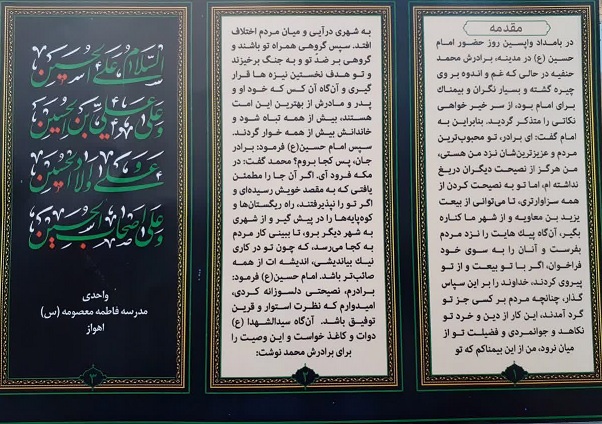 مقدمه
در بامداد واپسین روز حضور امام
حسین (ع) در مدینه، برادرش محمد
حنفیه در حالی که غم و اندوه بر وی
چیره گشته و بسیار نگران و بیمناک
برای امام بود، از سر خیر خواهی
نکاتی را متذکر گردید. بنابراین به
امام گفت: ای برادر، تو محبوب‌ترین
مردم و عزیزترین‌شان نزد من هستی،
من هرگز از نصیحت دیگران دریغ
نداشته ام، اما تو به نصیحت کردن از
همه سزاوارتری، تا می‌توانی از بیعت
یزید بن معاویه و از شهر ها کناره
بگیر، آن‌گاه پیک هایت را نزد مردم
بفرست و آنان را به سوی خود
فراخوان، اگر با تو بیعت و از تو
پیروی کردند، خداوند را بر این سپاس
گذار، چنانچه مردم بر کسی جز تو
گرد آمدند، این کار از دین و خرد تو
نکاهد و جوانمردی و فضیلت تو از
میان نرود، من از این بیمناکم که تو
۱
به شهری درآیی و میان مردم اختلاف
افتد. سپس گروهی همراه تو باشند و
گروهی بر ضد تو و به جنگ برخیزند
و تو هدف نخستین نیزه ها قرار
گیری و آن‌گاه آن کس که خود او و
پدر و مادرش از بهترین این امت
هستند، بیش از همه تباه شود و
خاندانش بیش از همه خوار گردند.
سپس امام حسین(ع) فرمود: برادر
جان، پس کجا بروم؟ محمد گفت: در
مکه فرود آی. اگر آن جا را مطمئن
یافتی که به مقصد خویش رسیده‌ای و
اگر تو را نپذیرفتند، راه ریگستان‌ها و
کوهپایه‌ها را در پیش گیر و از شهری
به شهر دیگر برو، تا ببینی کار مردم
به کجا می‌رسد، که چون تو در کاری
نیک بیاندیشی، اندیشه ات از همه
صائب‌تر باشد. امام حسین(ع) فرمود:
برادرم، نصیحتی دلسوزانه کردی،
امیدوارم که نظرت استوار و قرین
توفیق باشد. آن‌گاه سیدالشهدا (ع)
دوات و کاغذ خواست و این وصیت را
برای برادرش محمد نوشت:
۲
السلام علی الحسین
و علی علی بن الحسین
و علی اولاد الحسین
و علی اصحاب الحسین
واحدی
مدرسه فاطمه معصومه (س)
اهواز
۳